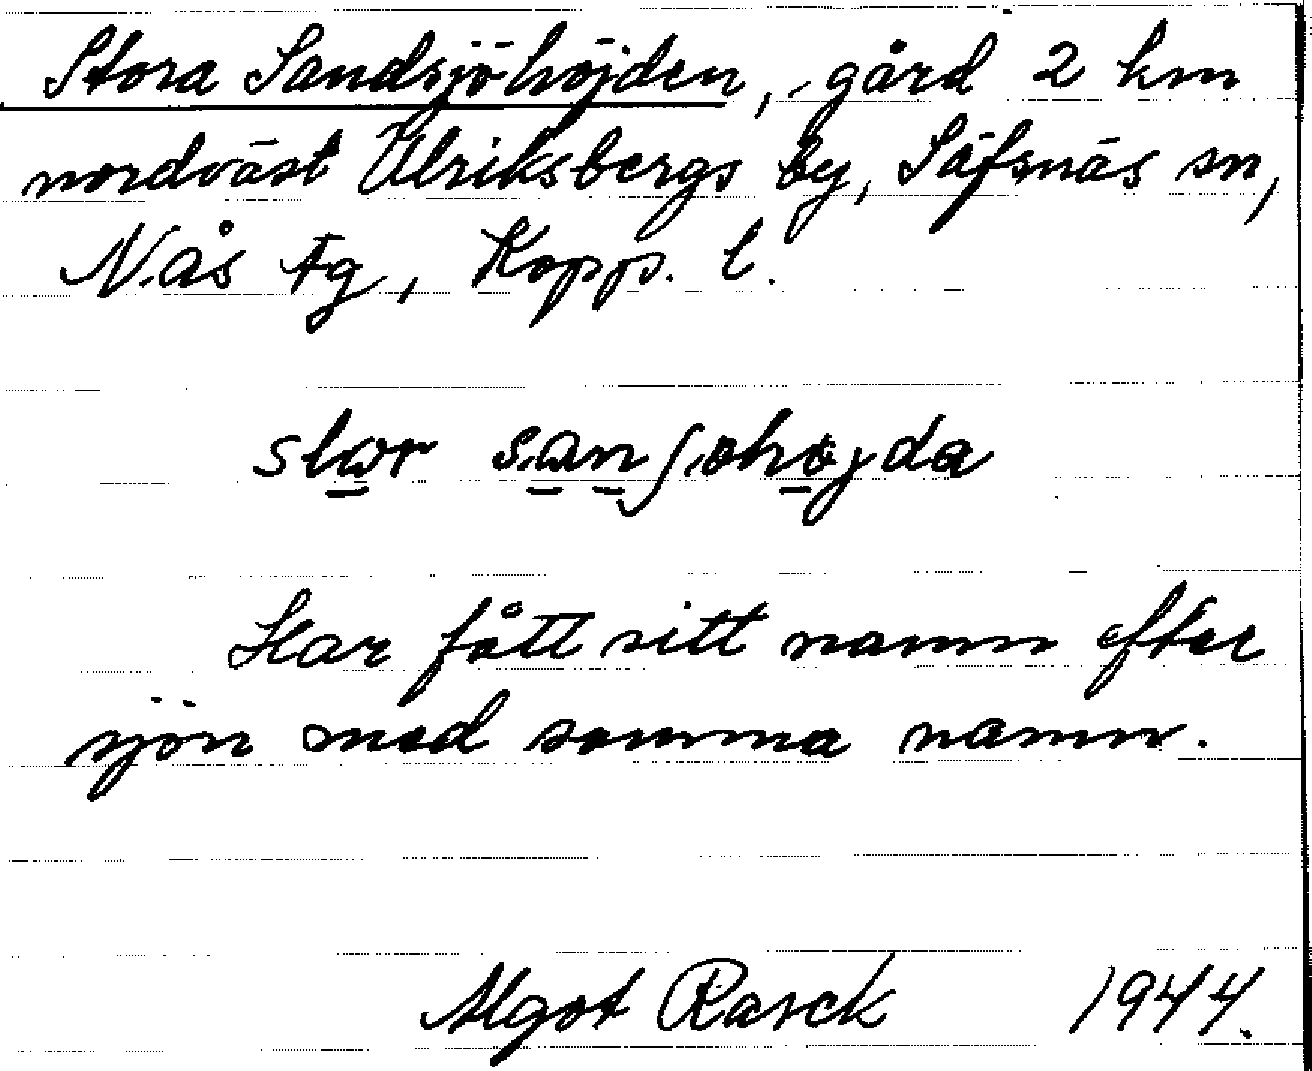 Stora Sandsjöhöjden, gård 2 km
nordväst Ulriksbergs by, Säfsnäs sn,
Nås tg, Kopps. l.
Har fått sitt namn efter
sjön med samma namn.
Algot Rasck 1944.